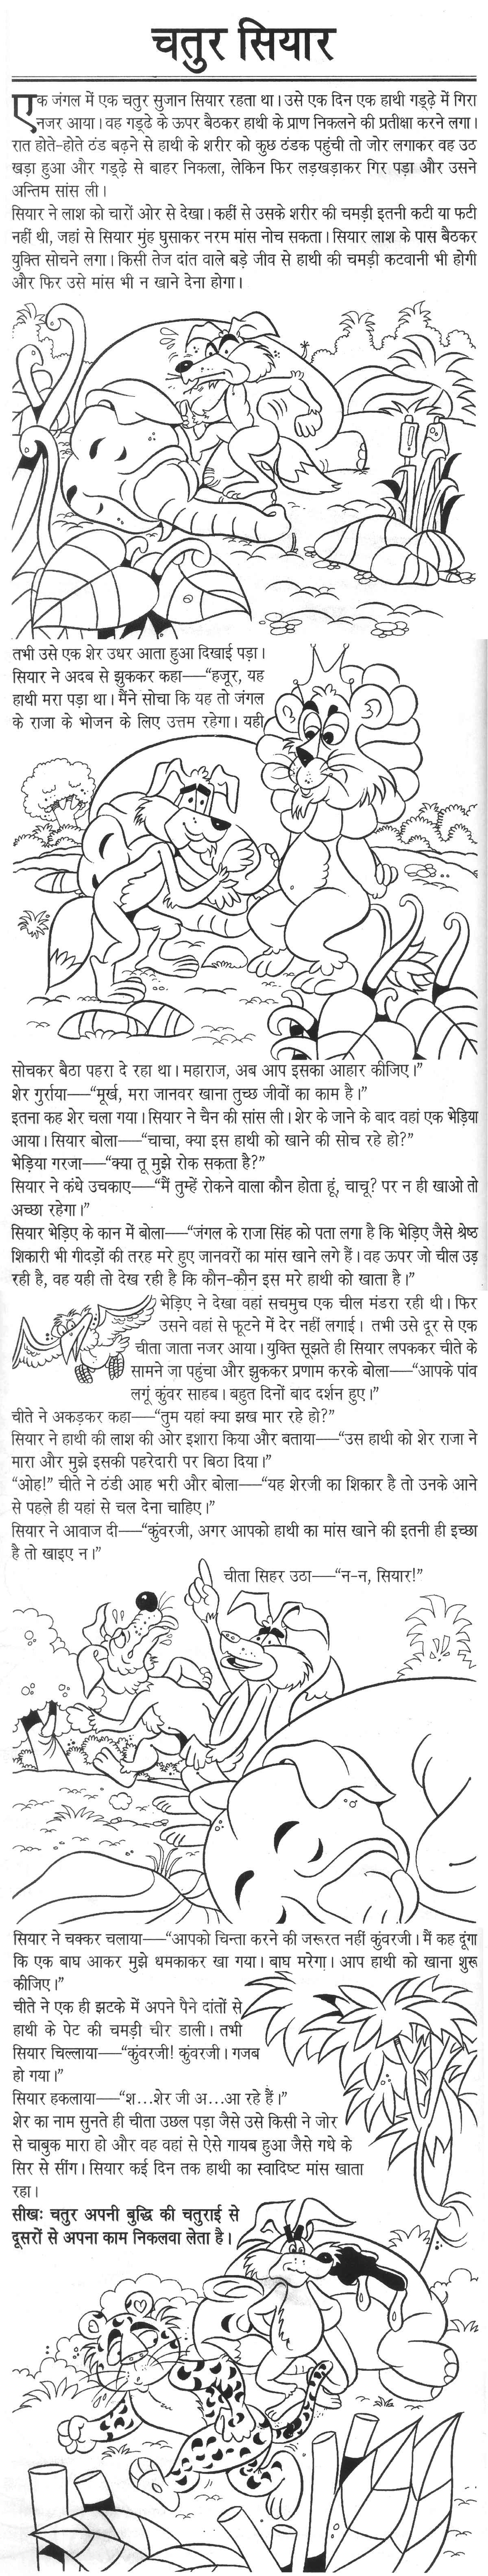 चतुर सियार
एक जंगल में एक चतुर सुजान सियार रहता था। उसे एक दिन एक हाथी गड्ढ़े में गिरा
नजर आया। वह गड्ढे के ऊपर बैठकर हाथी के प्राण निकलने की प्रतीक्षा करने लगा।
रात होते-होते ठंड बढ़ने से हाथी के शरीर को कुछ ठंडक पहुंची तो जोर लगाकर वह उठ
खड़ा हुआ और गड्ढ़े से बाहर निकला, लेकिन फिर लड़खड़ाकर गिर पड़ा और उसने
अन्तिम सांस ली।
सियार ने लाश को चारों ओर से देखा। कहीं से उसके शरीर की चमड़ी इतनी कटी या फटी
नहीं थी, जहां से सियार मुंह घुसाकर नरम मांस नोच सकता। सियार लाश के पास बैठकर
युक्ति सोचने लगा। किसी तेज दांत वाले बड़े जीव से हाथी की चमड़ी कटवानी भी होगी
और फिर उसे मांस भी न खाने देना होगा।
तभी उसे एक शेर उधर आता हुआ दिखाई पड़ा।
सियार ने अदब से झुककर कहा—“हजूर, यह
हाथी मरा पड़ा था। मैंने सोचा कि यह तो जंगल
के राजा के भोजन के लिए उत्तम रहेगा। यही
सोचकर बैठा पहरा दे रहा था। महाराज, अब आप इसका आहार कीजिए।”
शेर गुर्राया—“मूर्ख, मरा जानवर खाना तुच्छ जीवों का काम है।”
इतना कह शेर चला गया। सियार ने चैन की सांस ली। शेर के जाने के बाद वहां एक भेड़िया
आया। सियार बोला—“चाचा, क्या इस हाथी को खाने की सोच रहे हो?”
भेड़िया गरजा—“क्या तू मुझे रोक सकता है?”
सियार ने कंधे उचकाए—“मैं तुम्हें रोकने वाला कौन होता हूं, चाचू? पर न ही खाओ तो
अच्छा रहेगा।”
सियार भेड़िए के कान में बोला—“जंगल के राजा सिंह को पता लगा है कि भेड़िए जैसे श्रेष्ठ
शिकारी भी गीदड़ों की तरह मरे हुए जानवरों का मांस खाने लगे हैं। वह ऊपर जो चील उड़
रही है, वह यही तो देख रही है कि कौन-कौन इस मरे हाथी को खाता है।”
भेड़िए ने देखा वहां सचमुच एक चील मंडरा रही थी। फिर
उसने वहां से फूटने में देर नहीं लगाई। तभी उसे दूर से एक
चीता जाता नजर आया। युक्ति सूझते ही सियार लपककर चीते के
सामने जा पहुंचा और झुककर प्रणाम करके बोला—“आपके पांव
लगूं कुंवर साहब। बहुत दिनों बाद दर्शन हुए।”
चीते ने अकड़कर कहा—“तुम यहां क्या झख मार रहे हो?”
सियार ने हाथी की लाश की ओर इशारा किया और बताया—“उस हाथी को शेर राजा ने
मारा और मुझे इसकी पहरेदारी पर बिठा दिया।”
“ओह!” चीते ने ठंडी आह भरी और बोला—“यह शेरजी का शिकार है तो उनके आने
से पहले ही यहां से चल देना चाहिए।”
सियार ने आवाज दी—“कुंवरजी, अगर आपको हाथी का मांस खाने की इतनी ही इच्छा
है तो खाइए न।”
चीता सिहर उठा—“न-न, सियार!”
सियार ने चक्कर चलाया—“आपको चिन्ता करने की जरूरत नहीं कुंवरजी। मैं कह दूंगा
कि एक बाघ आकर मुझे धमकाकर खा गया। बाघ मरेगा। आप हाथी को खाना शुरू
कीजिए।”
चीते ने एक ही झटके में अपने पैने दांतों से
हाथी के पेट की चमड़ी चीर डाली। तभी
सियार चिल्लाया—“कुंवरजी! कुंवरजी। गजब
हो गया।”
सियार हकलाया—“श...शेर जी अ...आ रहे हैं।”
शेर का नाम सुनते ही चीता उछल पड़ा जैसे उसे किसी ने जोर
से चाबुक मारा हो और वह वहां से ऐसे गायब हुआ जैसे गधे के
सिर से सींग। सियार कई दिन तक हाथी का स्वादिष्ट मांस खाता
रहा।
सीखः चतुर अपनी बुद्धि की चतुराई से
दूसरों से अपना काम निकलवा लेता है।